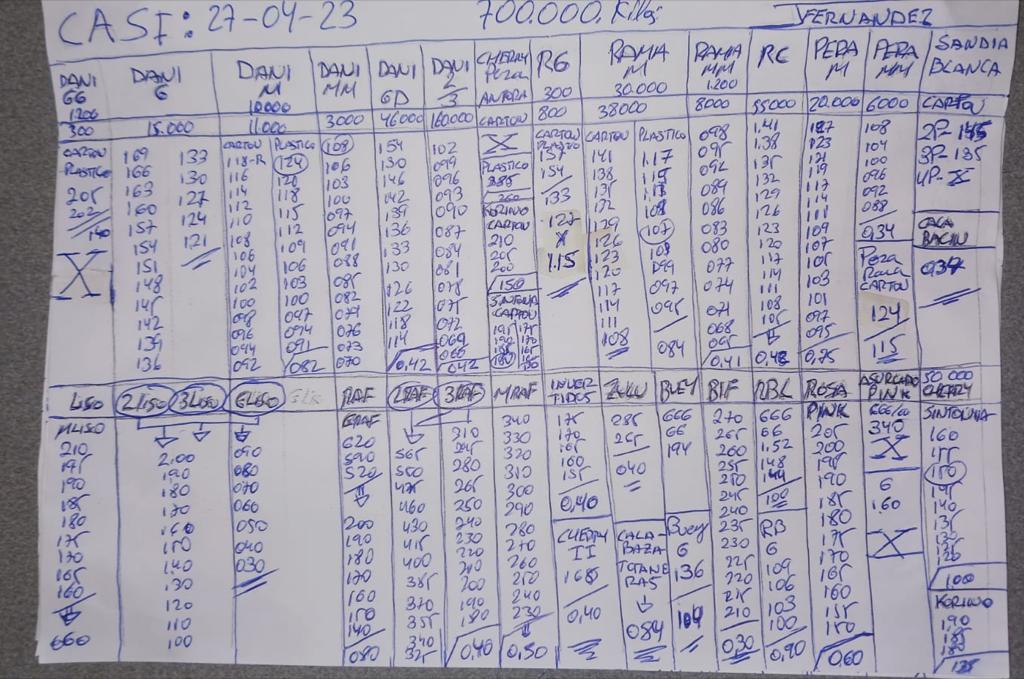 CASI: 27-04-23 700.000 Kilos J FERNANDEZ
DANI GG 1200 DANI G DANI M 10000 DANI MM DANI GD DANI 2/3 CHERRY Peza ANGORA RG 300 RAMA M 30.000 RAMA MM 1200 RC PERA M PERA MM SANDIA BLANCA
300 15.000 11000 3000 46000 160000 CARTON 800 38000 8000 55000 20.000 6000 CARTON
CARTON 169 133 CARTON PLASTICO 108 154 102 X CARTON CARTON PLASTICO 098 1.41 127 108 2P-
PLASTICO 166 130 118-R 124 106 150 099 PLASTICO 157 141 1.17 095 1.38 123 104 3P-135
205 163 127 116 120 103 146 096 285 154 138 115 092 135 121 100 4P-X
202 160 124 114 118 100 142 093 260 133 135 113 089 132 119 096
140 157 121 112 115 097 139 090 KORINO 127 132 108 086 129 117 092
X 154 110 112 094 136 087 CARTON X 129 107 083 126 114 088 CALA
151 108 109 091 133 084 210 1.15 126 108 080 123 111 0,34 BACIN
148 106 106 088 130 081 205 123 099 077 120 109 Peza 0,34
145 104 103 085 126 078 200 120 097 074 117 107 Rama
142 102 100 082 122 075 150 117 095 071 114 105 CARTON
139 100 097 079 118 072 SINTONIA 114 084 068 111 103 124
136 098 094 076 114 069 CARTON 111 0,41 108 101 115
096 091 073 0,42 066 195 175 108 105 097
094 082 070 0,42 190 170 0,48 095
092 185 165 0,75
LISO 2LISO 3LISO GLISO RAF 2RAF 3RAF MRAF INVER TIDOS ZULU BUEY BIF RBL ROSA ASURCADO PINK 50 000 CHERRY
MLISO 2.00 090 GRAF 565 310 340 175 285 666 270 666 PINK 666/60 SINTONIA
210 190 080 620 550 295 330 170 265 66 265 66 205 340 160
195 180 070 590 475 280 320 165 040 194 260 1.52 200 X 155
190 170 060 520 460 265 310 160 255 148 195 6 150
185 160 050 200 430 250 300 155 250 144 190 1.60 145
180 150 040 190 415 240 290 0,40 245 100 185 X 140
175 140 030 180 400 230 280 CHERRY CALA Buey 235 RB 180 135
170 130 170 385 220 270 II BAZA G 230 6 175 130
165 120 160 370 210 260 165 TOTANE 136 225 109 170 120
160 110 150 355 200 250 0,40 RAS 104 220 106 165 100
660 100 140 340 190 240 084 215 103 160 KORINO
080 325 180 230 210 100 155 190
0,40 0,50 0,30 0,90 150 185
0,60 180
135